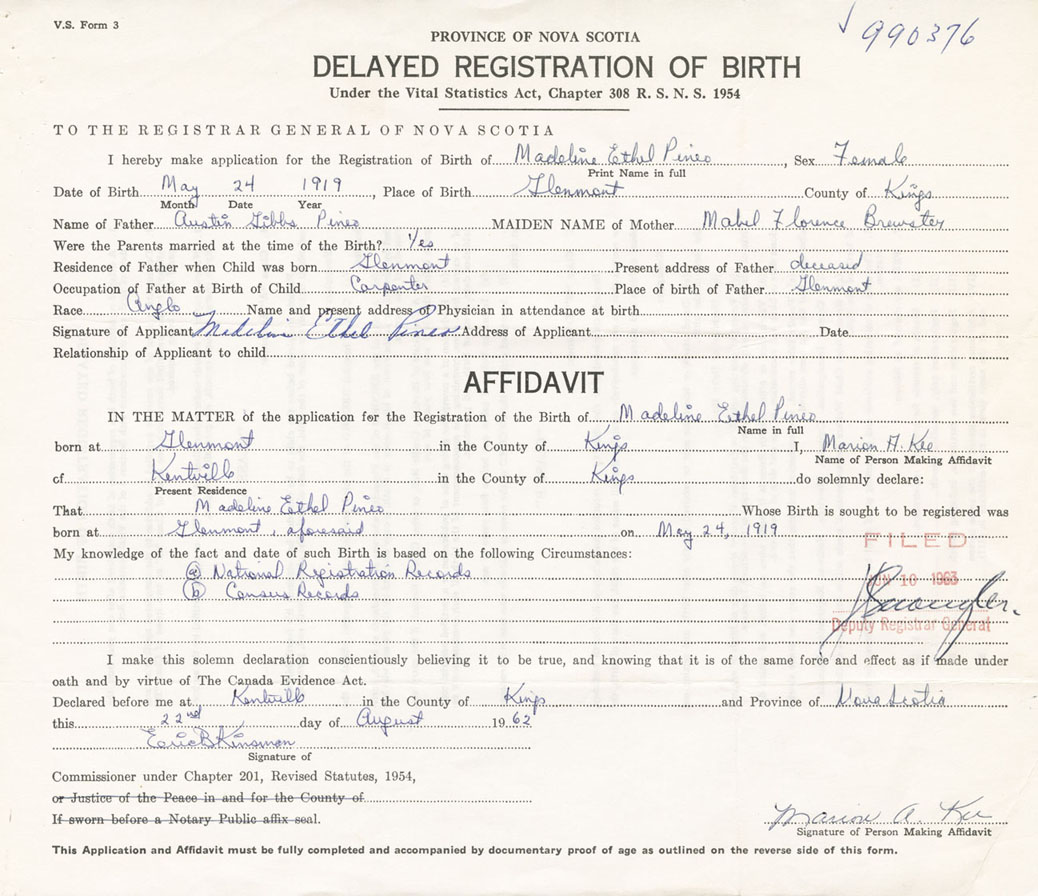 V.S. Form 3
√ 990376
PROVINCE OF NOVA SCOTIA
DELAYED REGISTRATION OF BIRTH
Under the Vital Statistics Act, Chapter 308 R. S. N. S. 1954
TO THE REGISTRAR GENERAL OF NOVA SCOTIA
I hereby make application for the Registration of Birth of Madeline Ethel Pineo, Sex Female
Print Name in full
Date of Birth May 24 1919, Place of Birth Glenmont County of Kings
Month Date Year
Name of Father Austin Gibbs Pineo MAIDEN NAME of Mother Mabel Florence Brewster
Were the Parents married at the time of the Birth? Yes
Residence of Father when Child was born Glenmont Present address of Father deceased
Occupation of Father at Birth of Child Carpenter Place of birth of Father Glenmont
Race Anglo Name and present address of Physician in attendance at birth
Signature of Applicant Madeline Ethel Pineo Address of Applicant Date
Relationship of Applicant to child
AFFIDAVIT
IN THE MATTER of the application for the Registration of the Birth of Madeline Ethel Pineo
Name in full
born at Glenmont in the County of Kings I, Marion A. Kee
Name of Person Making Affidavit
of Kentville in the County of Kings do solemnly declare:
Present Residence
That Madeline Ethel Pineo Whose Birth is sought to be registered was
born at Glenmont, aforesaid on May 24, 1919
FILED
My knowledge of the fact and date of such Birth is based on the following Circumstances:
(a) National Registration Records
JUN 10 1963
(b) Census Records
Deputy Registrar General
I make this solemn declaration conscientiously believing it to be true, and knowing that it is of the same force and effect as if made under
oath and by virtue of The Canada Evidence Act.
Declared before me at Kentville in the County of Kings and Province of Nova Scotia
this 22nd day of August 1962
Eric B Kinsman
Signature of
Commissioner under Chapter 201, Revised Statutes, 1954,
or Justice of the Peace in and for the County of
If sworn before a Notary Public affix seal.
Marion A. Kee
Signature of Person Making Affidavit
This Application and Affidavit must be fully completed and accompanied by documentary proof of age as outlined on the reverse side of this form.